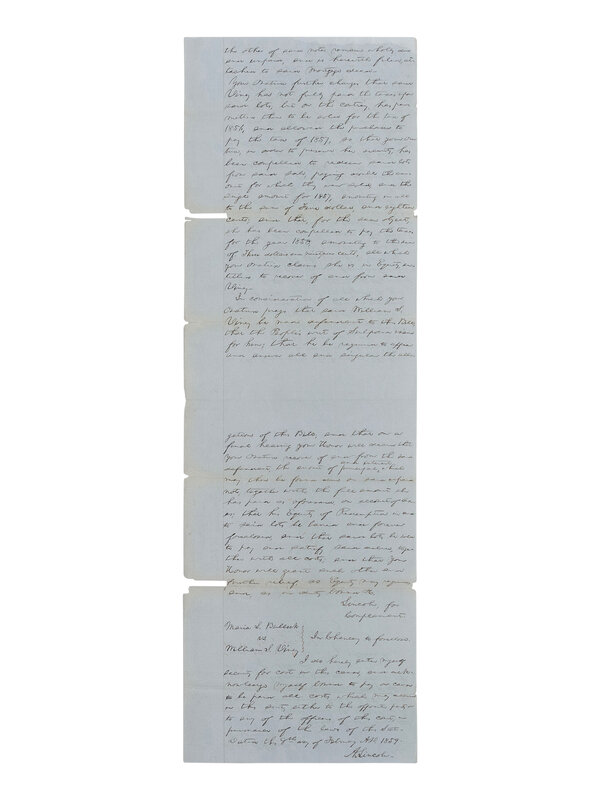 the other of said notes remains wholly due
and unpaid, and is herewith filed, at-
tached to said Mortgage deed.
Your Oratrix further charges that said
Viney has not fully paid the taxes upon
said lots, but on the contrary has per-
mitted them to be sold for the tax of
1856, and allowed the purchaser to
pay the tax of 1857, so that your Ora-
trix, in order to preserve her security, has
been compelled to redeem said lots
from said sale, paying double the am-
ount for which they were sold, and the
single amount for 1857, amounting in all
to the sum of dollars, and eighteen
cents, and that, for the same object,
she has been compelled to pay the taxes
for the year 1858, amounting to the sum
of Three dollars and cents, all which
your Oratrix claims she is in Equity en-
titled to recover of and from said
Viney.
In consideration of all which your
Oratrix prays that said William S.
Viney be made defendant to this Bill;
that the People's writ of Subpoena issue
for him; that he be required to appear
and answer all and singular the alle-
gations of this Bill; and that on a
final hearing your Honor will decree that
your Oratrix recover of and from the said
defendant, the amount of principal, and interest, which
may then be found due on said unpaid
note, together with the full amount she
has paid as aforesaid on account of tax-
es; that his Equity of Redemption in and
to said lots be barred and forever
foreclosed, and that said lots be sold
to pay and satisfy said decree, toge-
ther with all costs; and that your
Honor will grant such other and
further relief as Equity may require
and as in duty bound &c.
Lincoln for
Complainant
Maria L. Bullock
vs
William S. Viney
In Chancery to foreclose.
I do hereby enter myself
security for cost in this cause, and ack-
nowledge myself bound to pay or cause
to be paid all costs, which may accrue
in this suit, either to the opposite party or
to any of the officers of this court in
pursuance of the laws of this State.
Dated this 9th day of February A.D. 1859.
A. Lincoln.